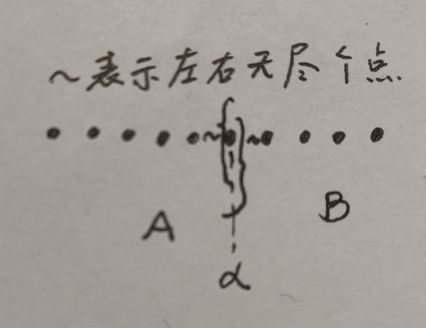 ~表示左右无尽个点
A
B
α